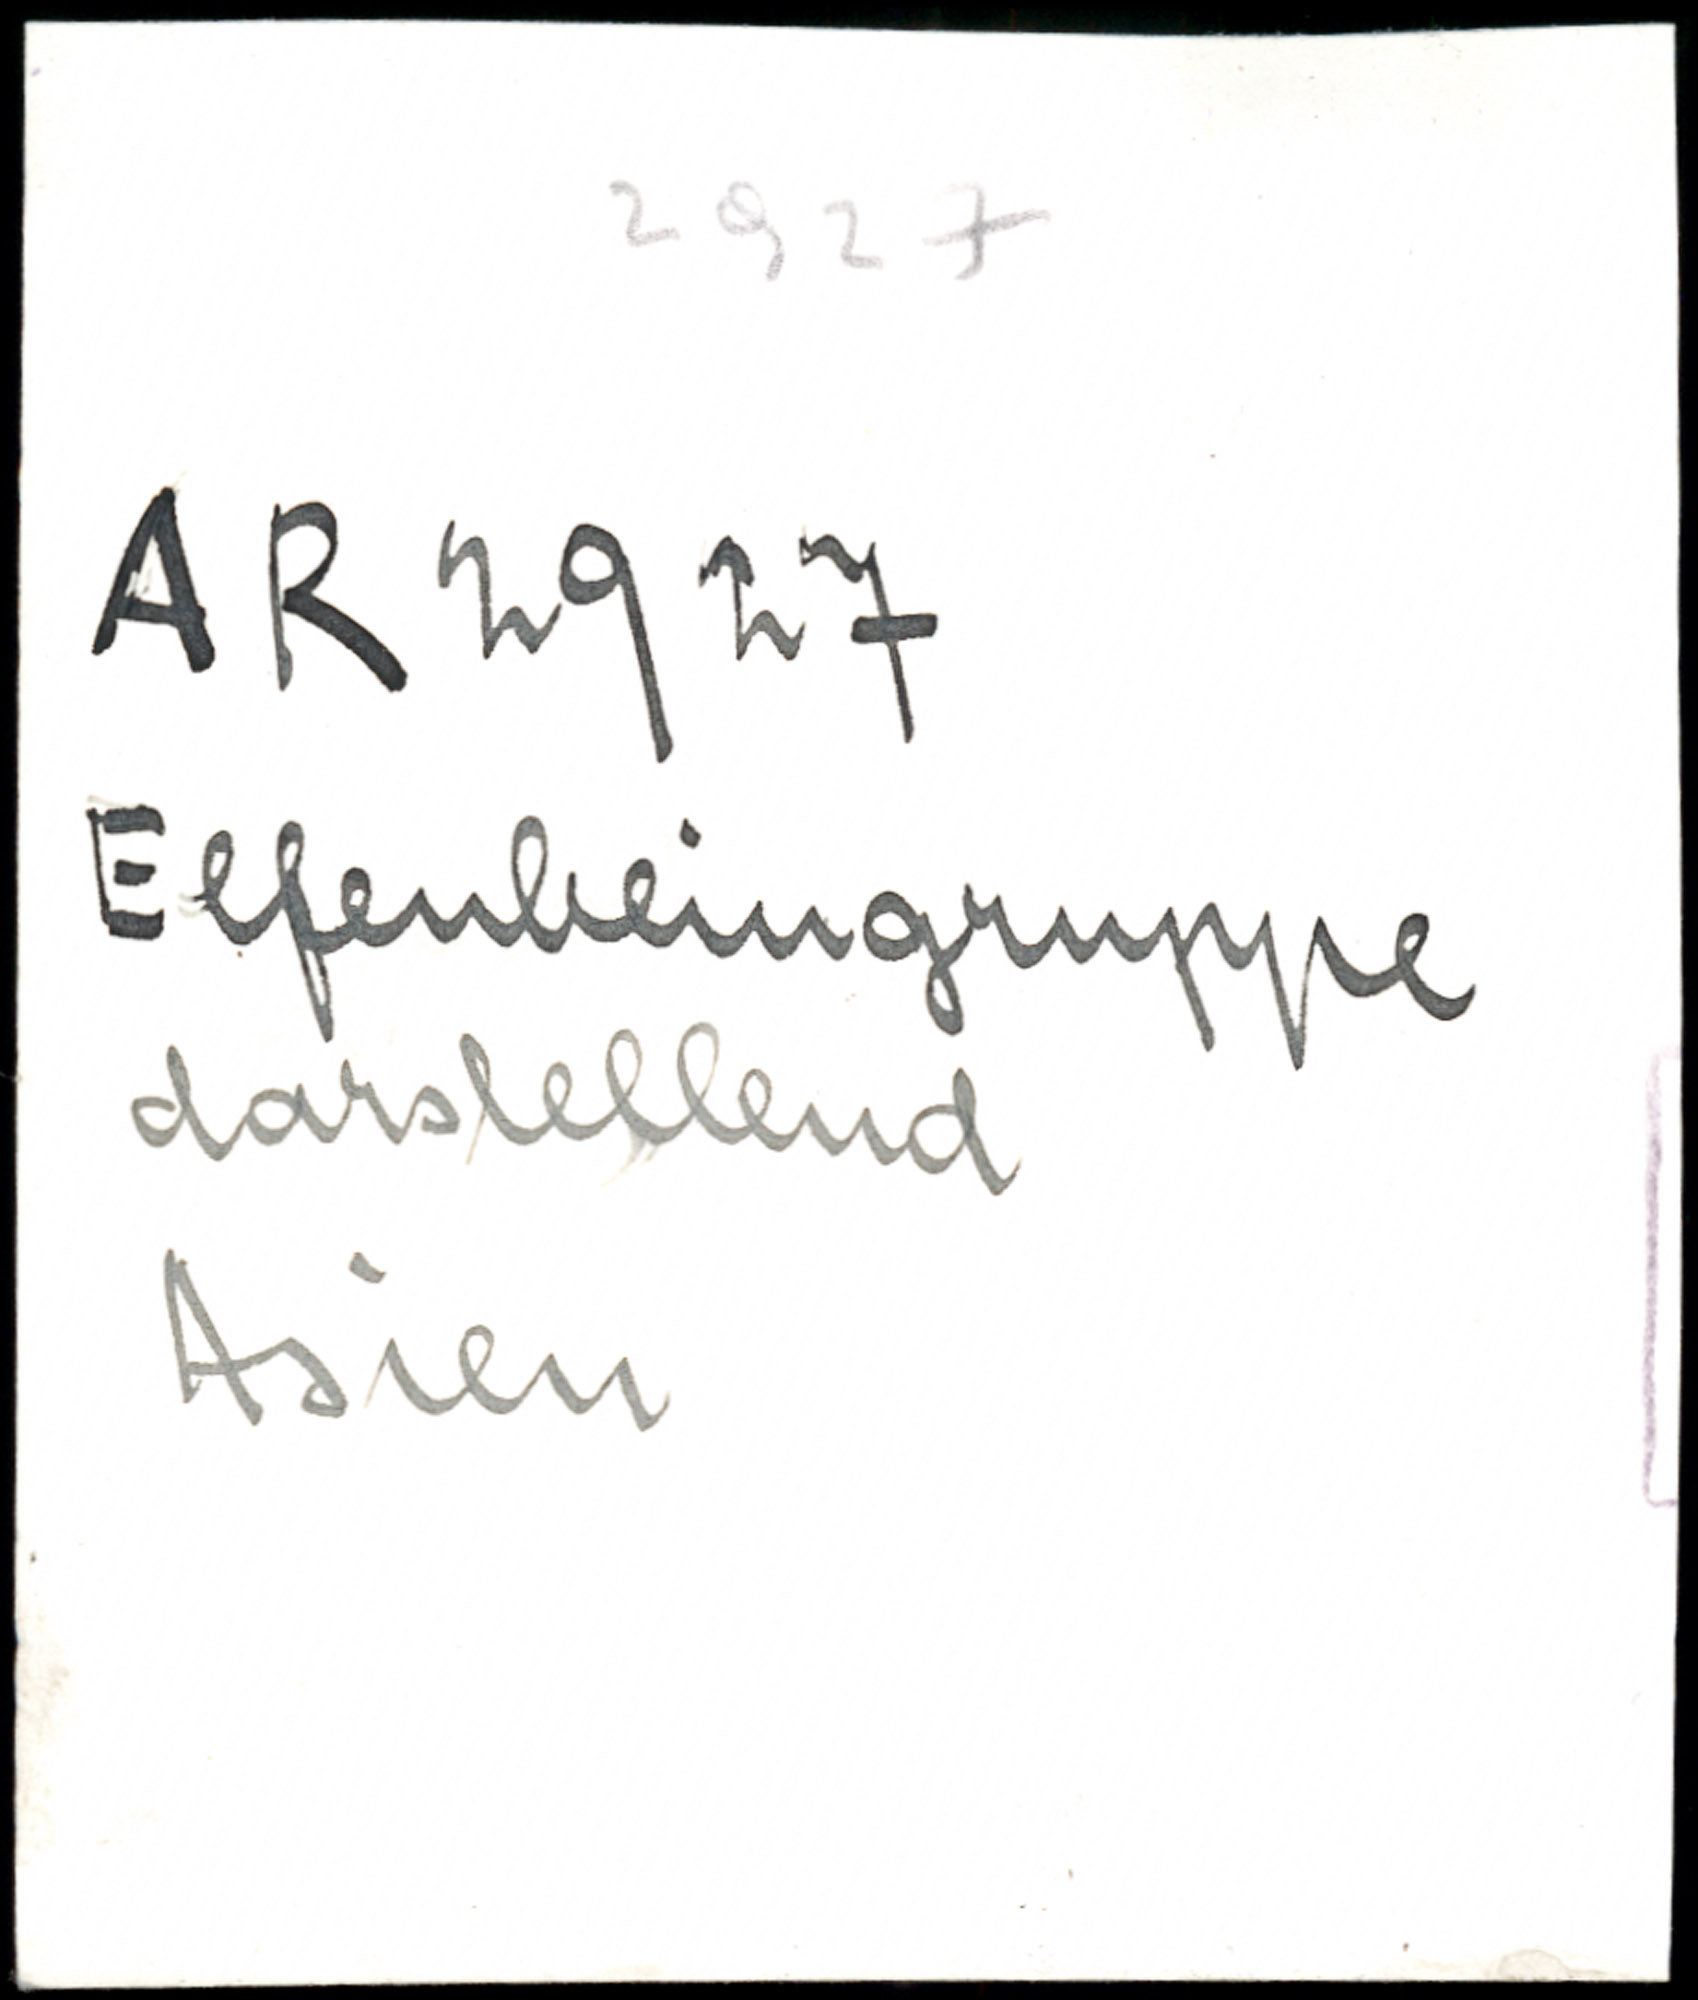 2927
AR 2927
Elfenbeingruppe
darstellend
Asien